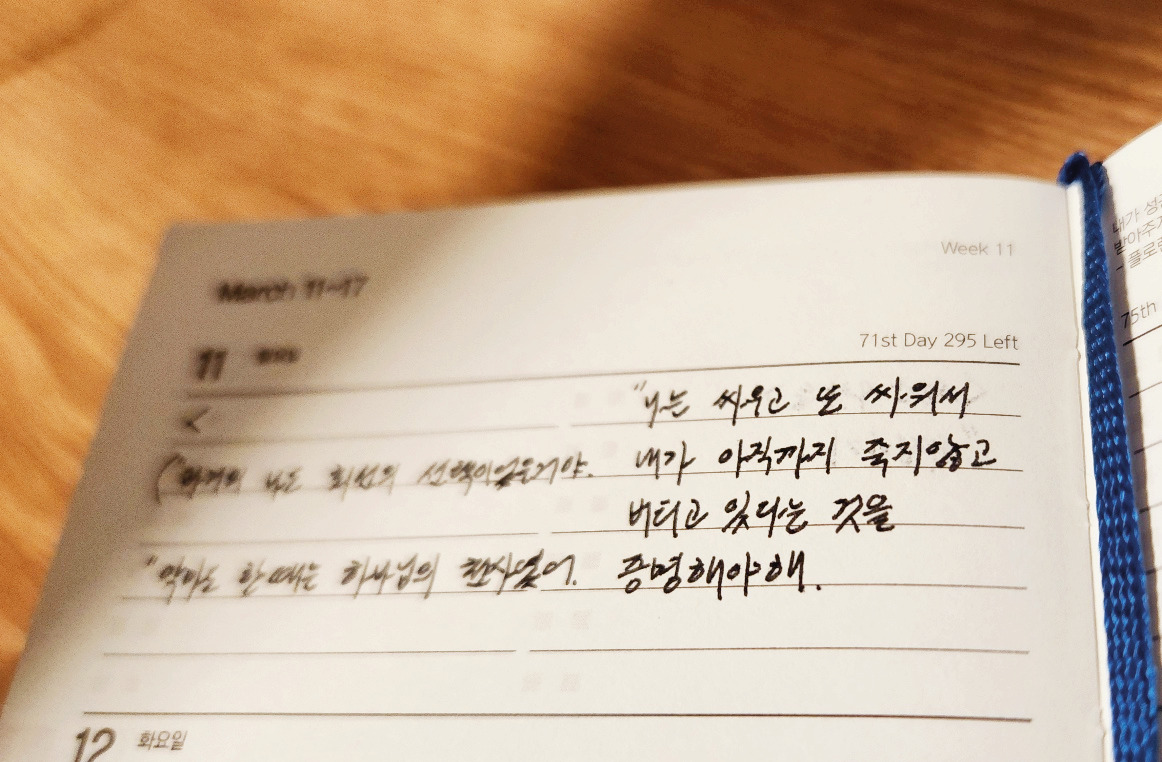 Week 11
March 11-17
71st Day 295 Left
11 월요일
<
"나는 싸우고 또 싸워서
내가 아직까지 죽지않고
버티고 있다는 것을
증명해야해.
("과거의 나도 최선의 선택이었을거야.
"악마도 한때는 하나님의 천사였어.
12 화요일
내가 성
받아주
75th